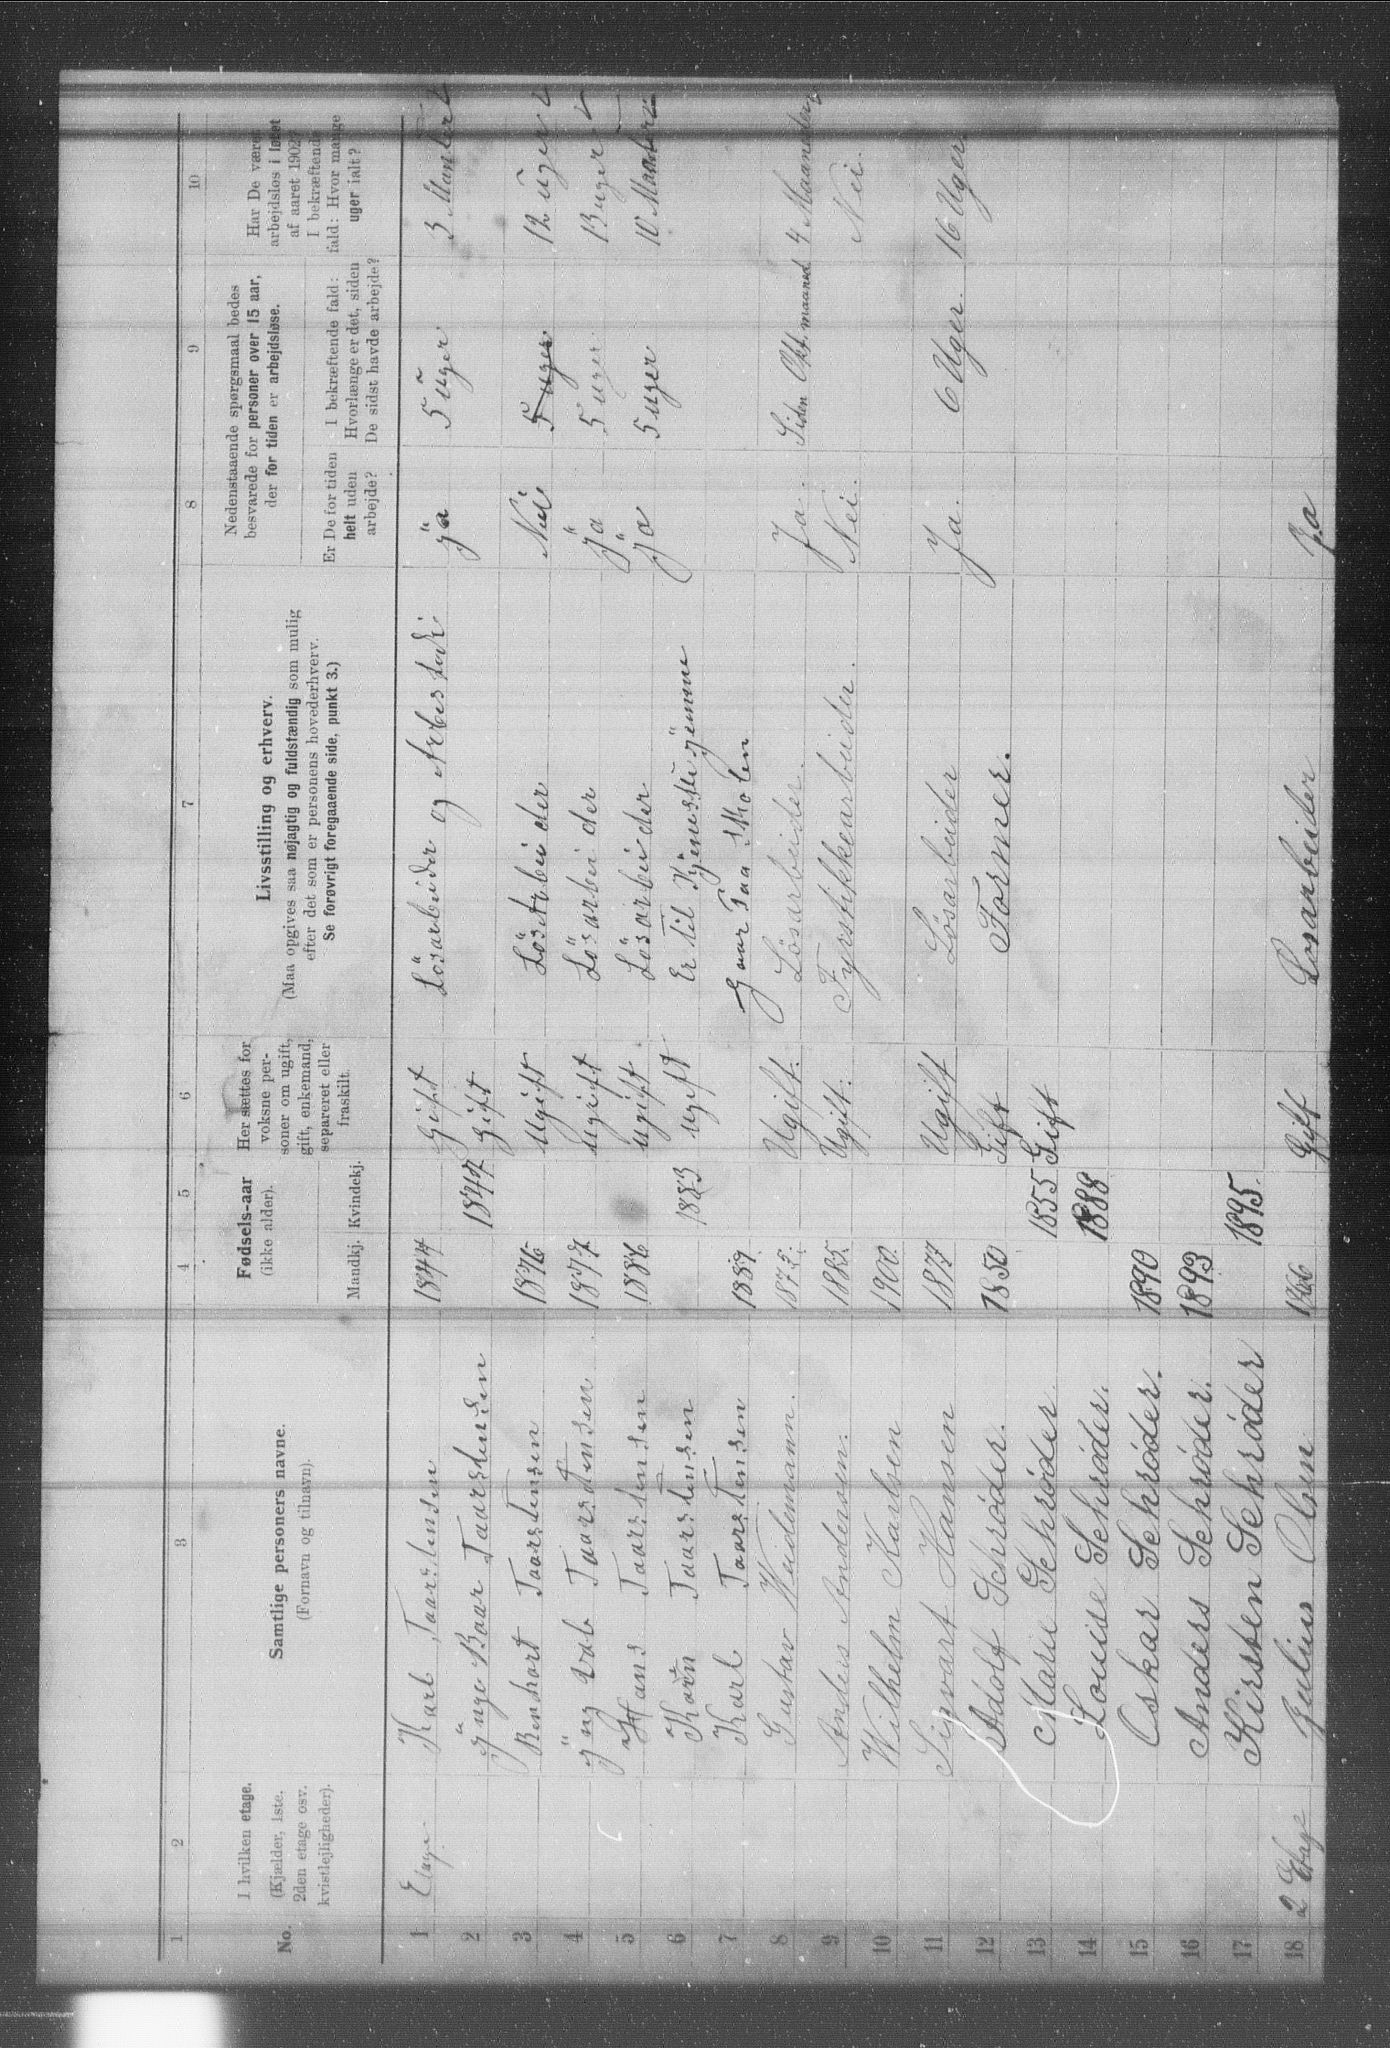 1 2 3 4 5 6 7 8 9 10
No.
I hvilken etage.
(Kjælder, 1ste.
2den etage osv.
kvistlejligheder).
Samtlige personers navne.
(Fornavn og tilnavn).
Fødsels-aar
(ikke alder).
Mandkj. Kvindekj.
Her sættes for
voksne per-
soner om ugift,
gift, enkemand,
separeret eller
fraskilt.
Livsstilling og erhverv.
(Maa opgives saa nøjagtig og fuldstændig som mulig
efter det som er personens hovederhverv.
Se forøvrigt foregaaende side, punkt 3.)
Nedenstaaende spørgsmaal bedes
besvarede for personer over 15 aar,
der for tiden er arbejdsløse.
Er De for tiden
helt uden
arbejde?
I bekræftende fald:
Hvorlænge er det, siden
De sidst havde arbejde?
Har De været
arbejdsløs i løbet
af aaret 1902?
I bekræftende
fald: Hvor mange
uger ialt?
1 Etage Karl Taarstensen 1844 Gift Lösarbeider og Ja 5 uger 3
2 Taarstensen 1847 Gift
3 Taarstensen 1876 Ugift Lösarbeider Nei 5 uger 12 uger
4 Taarstensen 1877 Ugift Lösarbeider Ja 5 uger 13 uger
5 Hans Taarstensen 1886 Ugift Lösarbeider Ja 5 uger 10
6 Taarstensen 1883 Ugift Er til
7 Karl Taarstensen 1889 Gaar Paa Skolen
8 Gustav Weidemann. Ugift. Lösarbeider. Ja. Siden Okt. maaned 4 Maaneder
9 Anders Andersen. 1885. Ugift. Fyrstikkearbeider. Nei. Nei.
10 Wilhelm Karlsen 1900
11 Sigvart Hansen 1877 Ugift Lösarbeider Ja. 6 Uger. 16 Uger
12 Adolf Schrøder. 1850 Gift Former.
13 Marie Schrøder. 1855 Gift
14 Louise Schrøder. 1888
15 Oskar Schrøder. 1890
16 Anders Schrøder. 1893
17 Kirsten Schrøder 1895.
18 2 Etage Julius Olsen 1866 Gift Losarbeider Ja